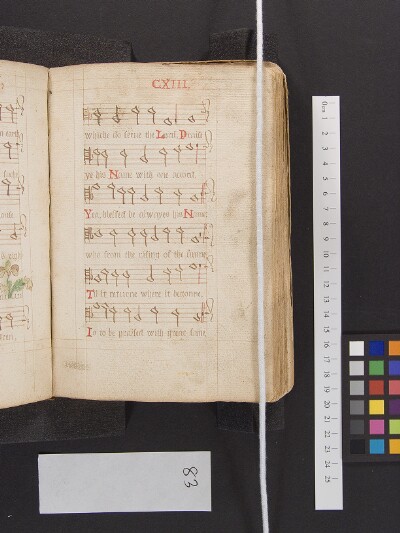 CXIII.
which do serue the Lord, Praise
ye his Name with one accord.
Yea, blessed be alwayes his Name:
who from the rising of the Sunne
Til it returne where it begonne,
Is to be praised with great fame
83
0 1 2 3 4 5 6 7 8 9 10 11 12 13 14 15 16 17 18 19 20 21 22 23 24 25